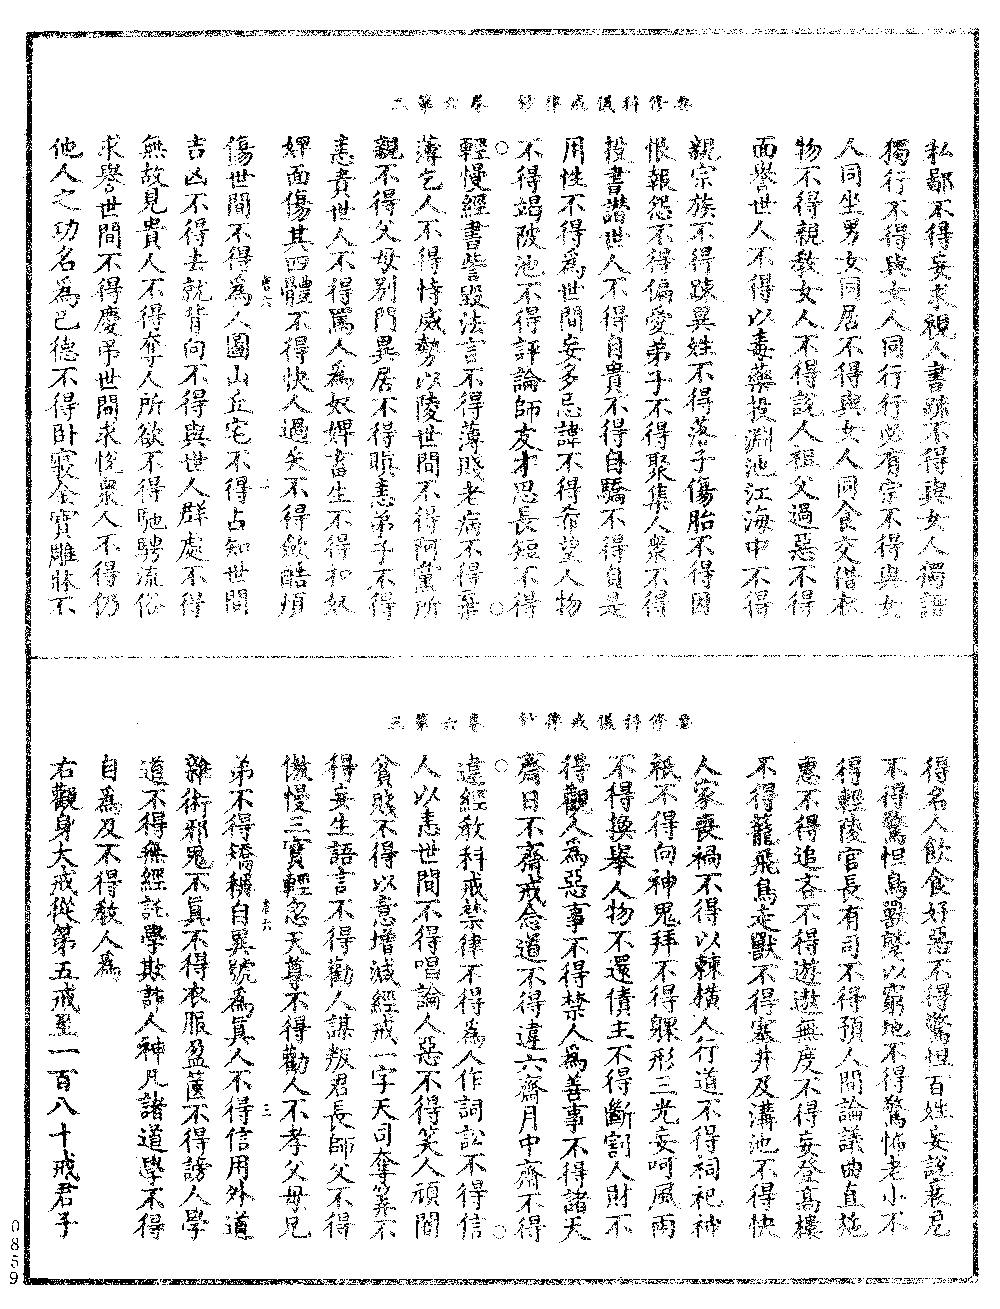 要修科儀戒律鈔　卷六第二
私鄙不得妄求視人書疏不得與女人獨語
獨行不得與女人同行行必有宗不得與女
人同坐男女同居不得與女人同食交借衣
物不得親教女人不得說人祖父過惡不得
面譽世人不得以毒藥投淵池江海中不得
親宗族不得疎異姓不得落子傷胎不得因
恨報怨不得偏愛弟子不得聚集人衆不得
投書譖世人不得自貴不得自驕不得自是
用性不得為世間妄多忌諱不得希望人物
不得竭陂池不得評論師友才思長短不得
輕慢經書訾毀法言不得薄賤老病不得棄
薄乞人不得恃威勢以陵世間不得阿黨所
親不得父母別門異居不得瞋恚弟子不得
恚責世人不得罵人為奴婢畜生不得和奴
婢面傷其四體不得快人過失不得斂酷煩
卷六
二
傷世間不得為人圖山丘宅不得占知世間
吉凶不得去就背向不得與世人群處不得
無故見貴人不得奪人所欲不得馳騁流俗
求譽世間不得慶弔世間求悅衆人不得仍
他人之功名為己德不得卧寢金寶雕牀不
要修科儀戒律鈔　卷六第三
得名人飲食好惡不得驚怛百姓妄說衰厄
不得驚怛鳥獸蹵以窮地不得驚怖老小不
得輕陵官長有司不得預人間論議曲直施
惠不得追吝不得遊遨無度不得妄登高樓
不得籠飛鳥走獸不得塞井及溝池不得快
人家喪禍不得以棘橫人行道不得祠祀神
祇不得向神鬼拜不得躶形三光妄呵風雨
不得換舉人物不還債主不得斷割人財不
得觀人為惡事不得禁人為善事不得諸天
齋日不齋戒念道不得違六齋月中齋不得
違經教科戒禁律不得為人作詞訟不得信
人以恚世間不得唱論人惡不得笑人頑闇
貧賤不得以意增減經戒一字天司奪筭不
得妄生語言不得勸人謀叛君長師父不得
傲慢三寶輕忽天尊不得勸人不孝父母兄
卷六
三
弟不得矯稱自異號為真人不得信用外道
雜術邪鬼不真不得衣服盈篋不得謗人學
道不得無經託學欺詐人神凡諸道學不得
自為及不得教人為
右觀身大戒從第五戒至一百八十戒君子
0859